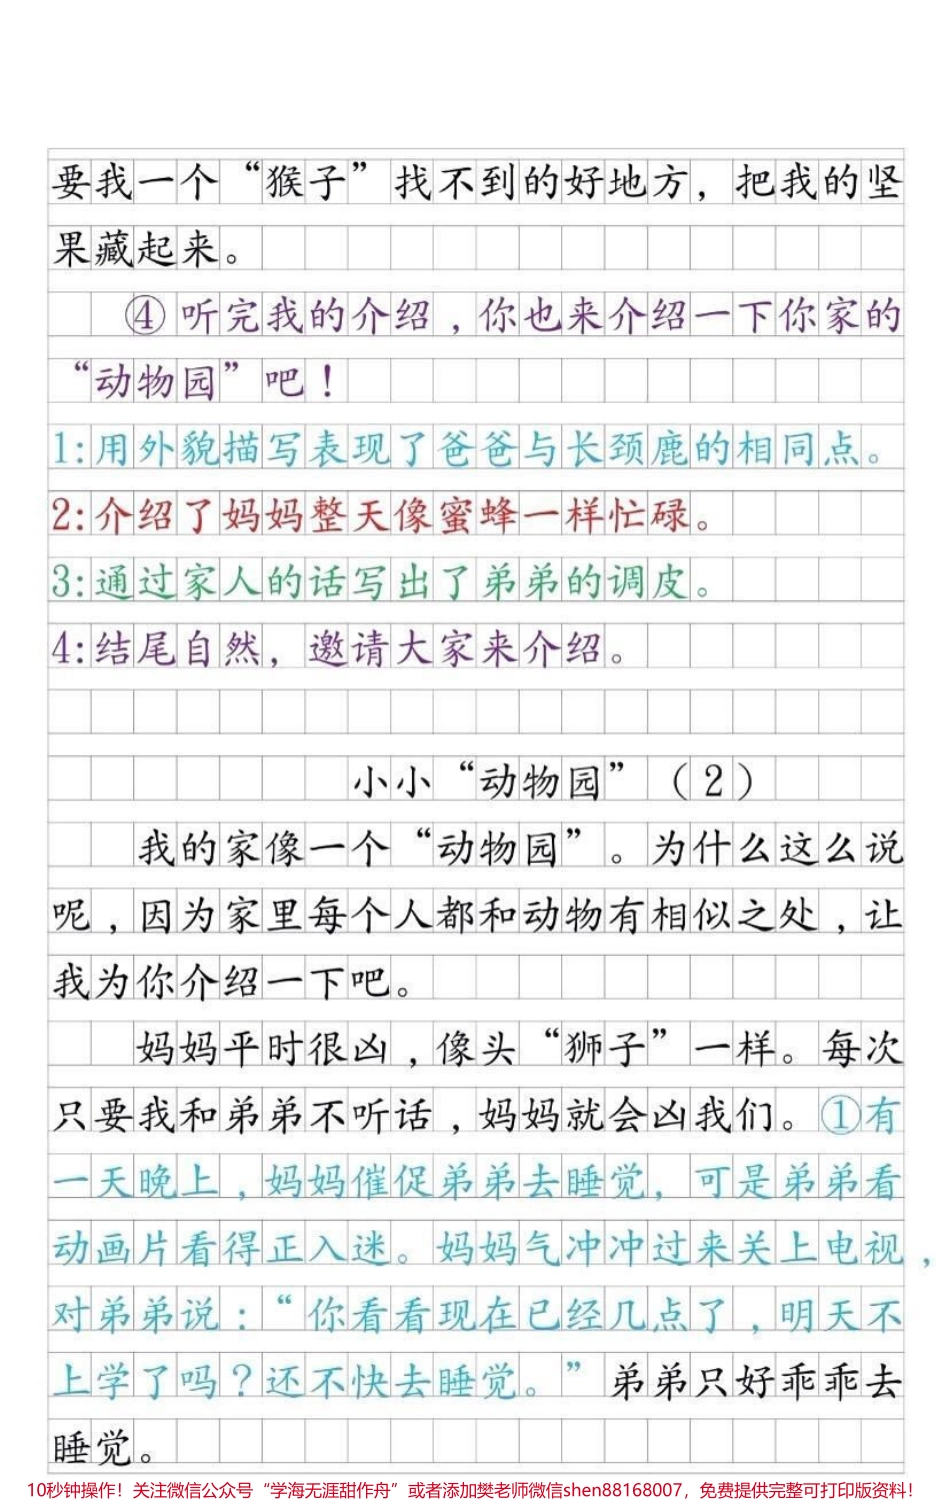 要我一个“猴子”找不到的好地方，把我的坚
果藏起来。
④听完我的介绍，你也来介绍一下你家的
“动物园”吧！
1:用外貌描写表现了爸爸与长颈鹿的相同点。
2:介绍了妈妈整天像蜜蜂一样忙碌。
3:通过家人的话写出了弟弟的调皮。
4:结尾自然，邀请大家来介绍。
小小“动物园”（2）
我的家像一个“动物园”。为什么这么说
呢，因为家里每个人都和动物有相似之处，让
我为你介绍一下吧。
妈妈平时很凶，像头“狮子”一样。每次
只要我和弟弟不听话，妈妈就会凶我们。①有
一天晚上，妈妈催促弟弟去睡觉，可是弟弟看
动画片看得正入迷。妈妈气冲冲过来关上电视，
对弟弟说：“你看看现在已经几点了，明天不
上学了吗？还不快去睡觉。”弟弟只好乖乖去
睡觉。
10秒钟操作！关注微信公众号“学海无涯甜作舟”或者添加樊老师微信shen88168007，免费提供完整可打印版资料！